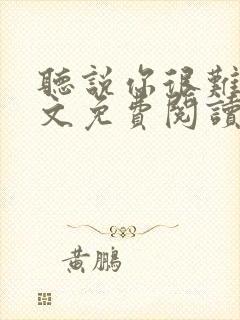 聽說你很難
文免費閱讀
黃鵬